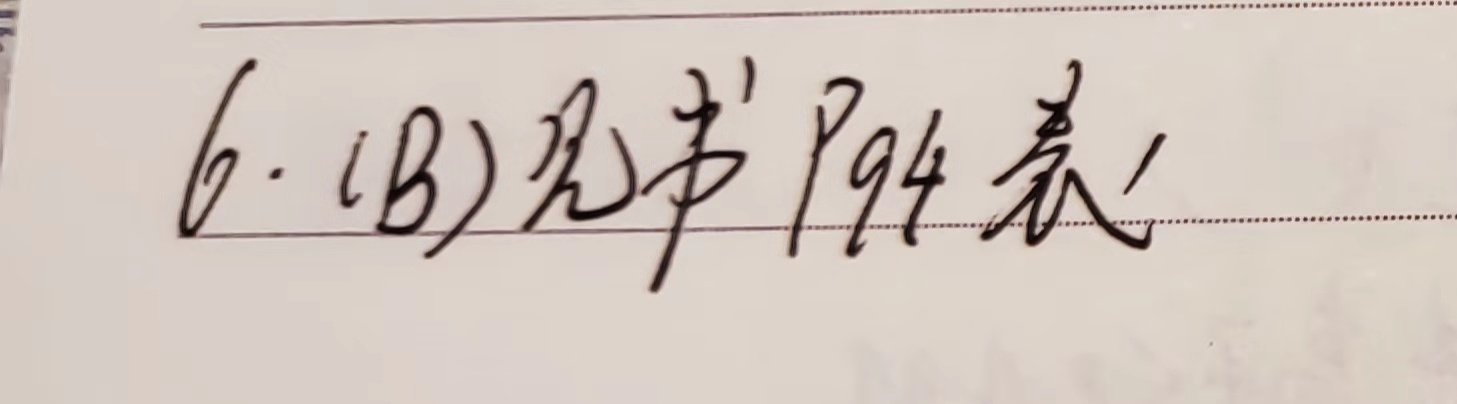 6.(B)见书P94表